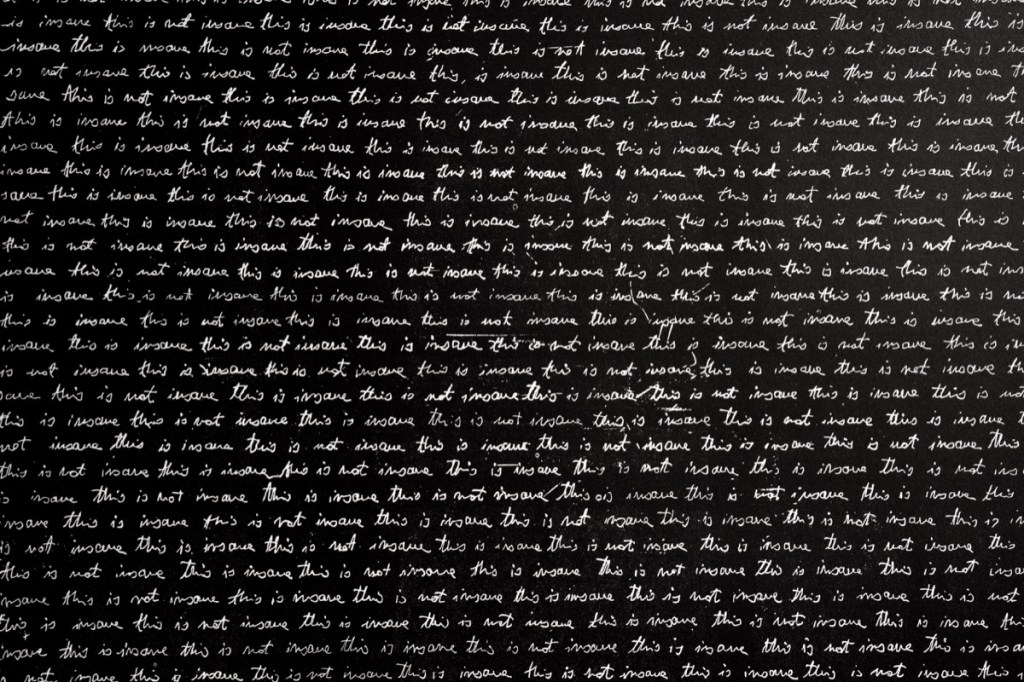 is not insane this is insane this is not insane this is insane this is not
is insane this is not insane this is insane this is not insane this is insane this is not insane this is insane this is
insane this is insane this is not insane this is insane this is not insane this is insane this is not insane this is
is not insane this is insane this is not insane this is insane this is not insane this is insane this is not insane
sane this is not insane this is insane this is not insane this is insane this is not insane this is insane this is not
this is insane this is not insane this is insane this is not insane this is insane this is not insane this is insane this is
insane this is insane this is not insane this is insane this is not insane this is insane this is not insane this is insane
insane this is insane this is not insane this is insane this is not insane this is insane this is not insane this is insane this is
sane this is insane this is not insane this is insane this is not insane this is insane this is not insane this is insane
not insane this is insane this is not insane this is insane this is not insane this is insane this is not insane this is
this is not insane this is insane this is not insane this is insane this is not insane this is insane this is not insane
insane this is not insane this is insane this is not insane this is insane this is not insane this is insane this is not
is insane this is not insane this is insane this is not insane this is insane this is not insane this is insane this is
this is insane this is not insane this is insane this is not insane this is insane this is not insane this is insane this
insane this is insane this is not insane this is insane this is not insane this is insane this is not insane this is
is not insane this is insane this is not insane this is insane this is not insane this is insane this is not insane this
sane this is not insane this is insane this is not insane this is insane this is not insane this is insane this is
this is insane this is not insane this is insane this is not insane this is insane this is not insane this is insane
not insane this is insane this is not insane this is insane this is not insane this is insane this is not insane this
this is not insane this is insane this is not insane this is insane this is not insane this is insane this is not
is insane this is not insane this is insane this is not insane this is insane this is not insane this is insane this
insane this is insane this is not insane this is insane this is not insane this is insane this is not insane this is
is not insane this is insane this is not insane this is insane this is not insane this is insane this is not insane this
this is not insane this is insane this is not insane this is insane this is not insane this is insane this is not
insane this is not insane this is insane this is not insane this is insane this is not insane this is insane this is not
this is insane this is not insane this is insane this is not insane this is insane this is not insane this is insane this
insane this is insane this is not insane this is insane this is not insane this is insane this is not insane this is
not insane this is insane this is not insane this is insane this is not insane this is insane this is not insane this